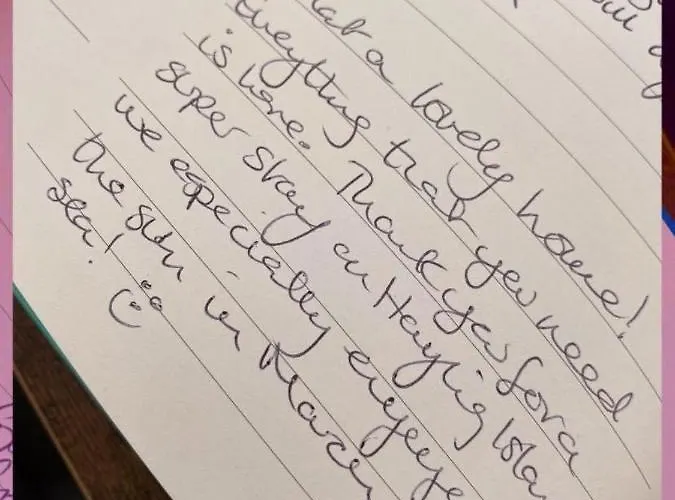 a lovely home!
Everything that you need
is here. Thank you for a
super stay on Hayling Isla
we especially enjoye
the sun in March
sea! :)